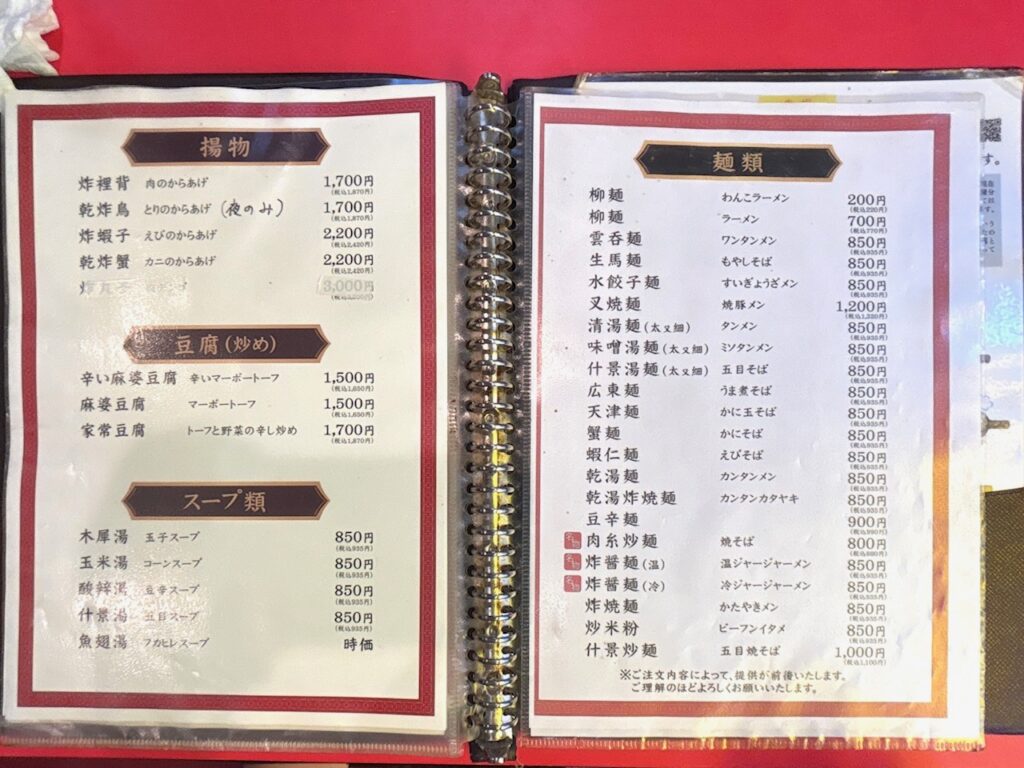 揚物
炸裡背 肉のからあげ 1,700円
(税込1,870円)
乾炸鳥 とりのからあげ (夜のみ) 1,700円
(税込1,870円)
炸蝦子 えびのからあげ 2,200円
(税込2,420円)
乾炸蟹 カニのからあげ 2,200円
(税込2,420円)
炸丸子 3,000円
(税込3,300円)
豆腐(炒め)
辛い麻婆豆腐 辛いマーボートーフ 1,500円
(税込1,650円)
麻婆豆腐 マーボートーフ 1,500円
(税込1,650円)
家常豆腐 トーフと野菜の辛し炒め 1,700円
(税込1,870円)
スープ類
木犀湯 玉子スープ 850円
(税込935円)
玉米湯 コーンスープ 850円
(税込935円)
酸辣湯 豆辛スープ 850円
(税込935円)
什景湯 五目スープ 850円
(税込935円)
魚翅湯 フカヒレスープ 時価
麺類
柳麺 わんこラーメン 200円
(税込220円)
柳麺 ラーメン 700円
(税込770円)
雲呑麺 ワンタンメン 850円
(税込935円)
生馬麺 もやしそば 850円
(税込935円)
水餃子麺 すいぎょうざメン 850円
(税込935円)
叉焼麺 焼豚メン 1,200円
(税込1,320円)
清湯麺(太又細) タンメン 850円
(税込935円)
味噌湯麺(太又細) ミソタンメン 850円
(税込935円)
什景湯麺(太又細) 五目そば 850円
(税込935円)
広東麺 うま煮そば 850円
(税込935円)
天津麺 かに玉そば 850円
(税込935円)
蟹麺 かにそば 850円
(税込935円)
蝦仁麺 えびそば 850円
(税込935円)
乾湯麺 カンタンメン 850円
(税込935円)
乾湯炸焼麺 カンタンカタヤキ 850円
(税込935円)
豆辛麺 900円
(税込990円)
肉糸炒麺 焼そば 800円
(税込880円)
炸醤麺(温) 温ジャージャーメン 850円
(税込935円)
炸醤麺(冷) 冷ジャージャーメン 850円
(税込935円)
炸焼麺 かたやきメン 850円
(税込935円)
炒米粉 ビーフンイタメ 850円
(税込935円)
什景炒麺 五目焼そば 1,000円
(税込1,100円)
※ご注文内容によって、提供が前後いたします。
ご理解のほどよろしくお願いいたします。
す。